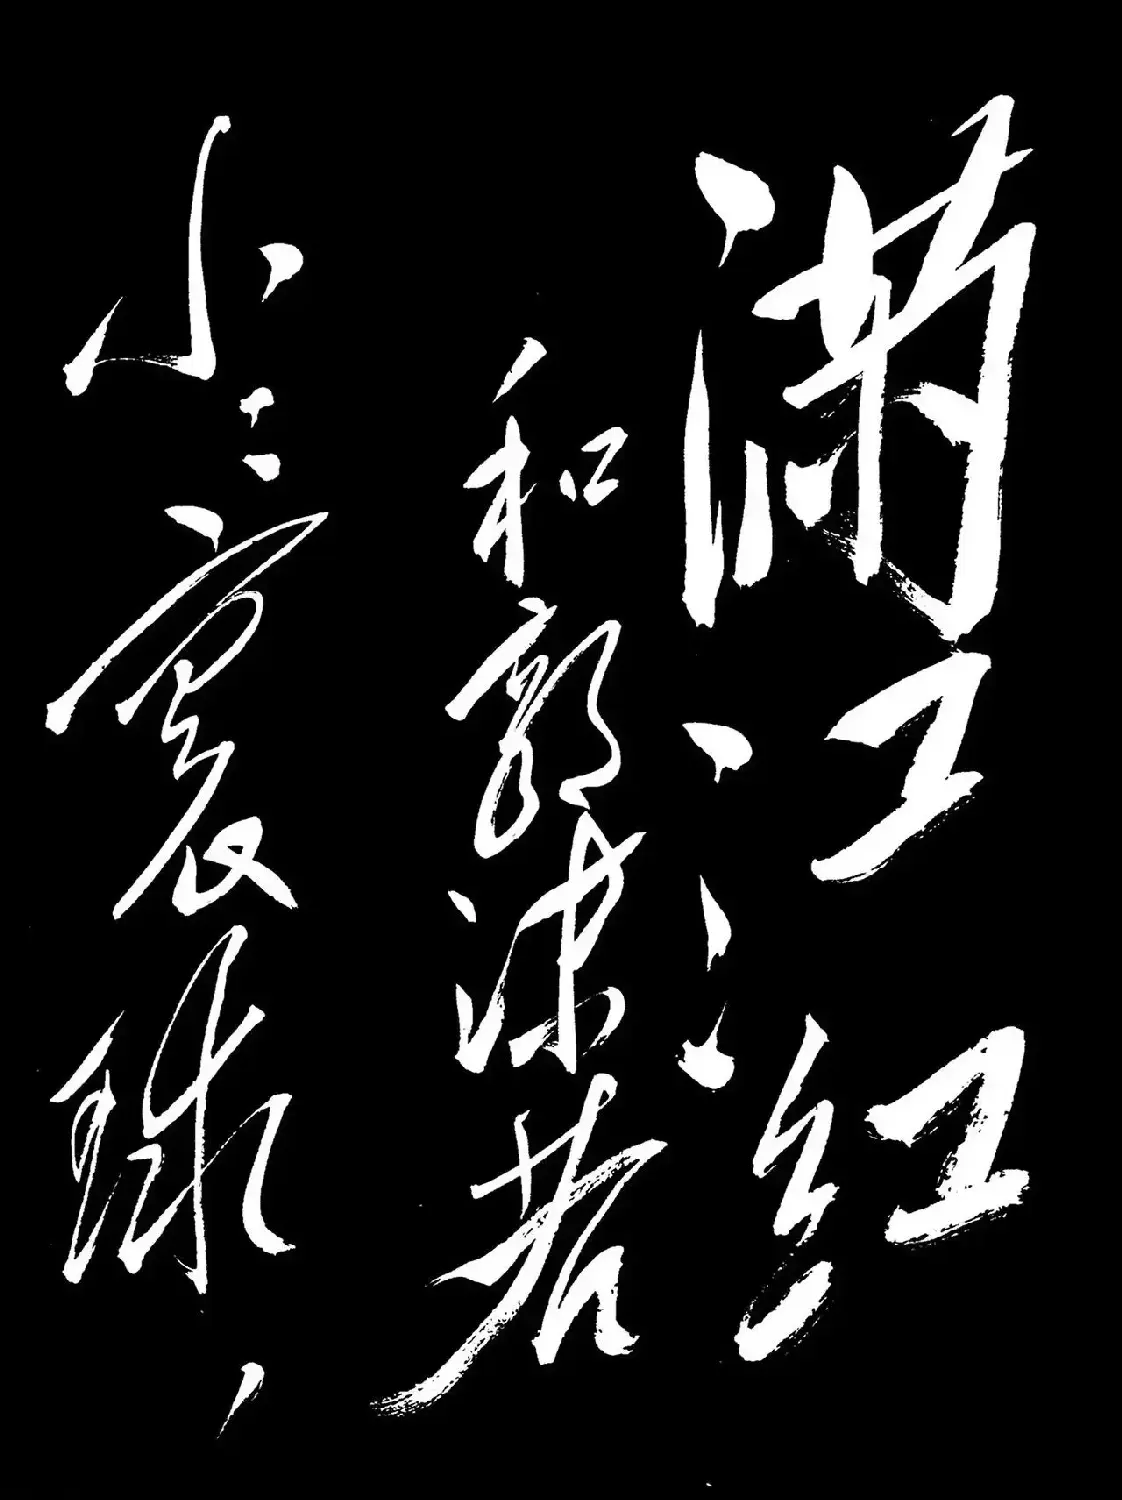 满江红
和郭沫若
小小寰球，